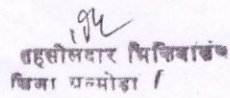 तहसीलदार भिकियासैंण
जिला अल्मोड़ा